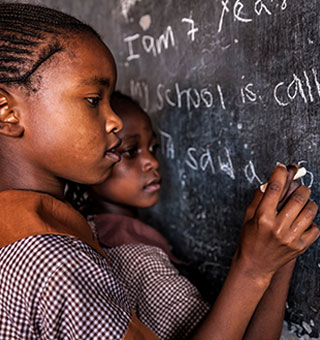 I am 7 yea
my school is call
I said a